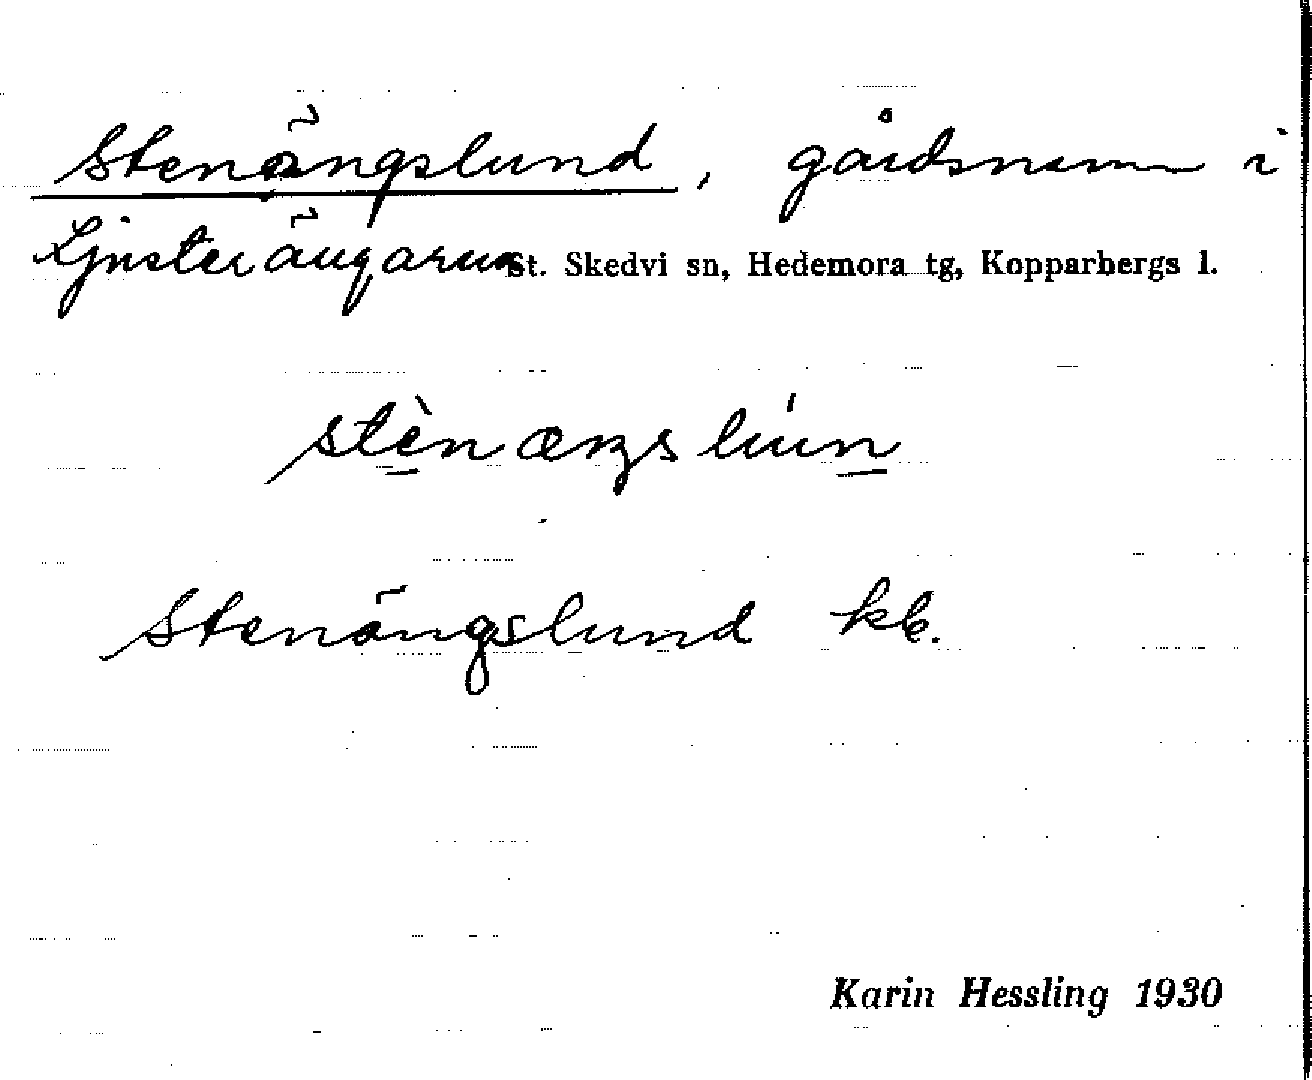 Stenängslund, gårdsnamn i
Ljusterängarna St. Skedvi sn, Hedemora tg, Kopparbergs l.
stènæŋslún
Stenängslund kb.
Karin Hessling 1930